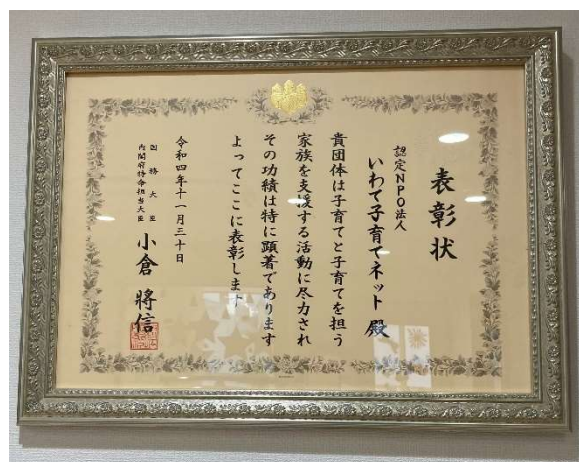 表彰状
認定NPO法人
いわて子育てネット 殿
貴団体は子育てと子育てを担う
家族を支援する活動に尽力され
その功績は特に顕著であります
よってここに表彰します
令和四年十一月三十日
国務大臣
内閣府特命担当大臣
小倉將信